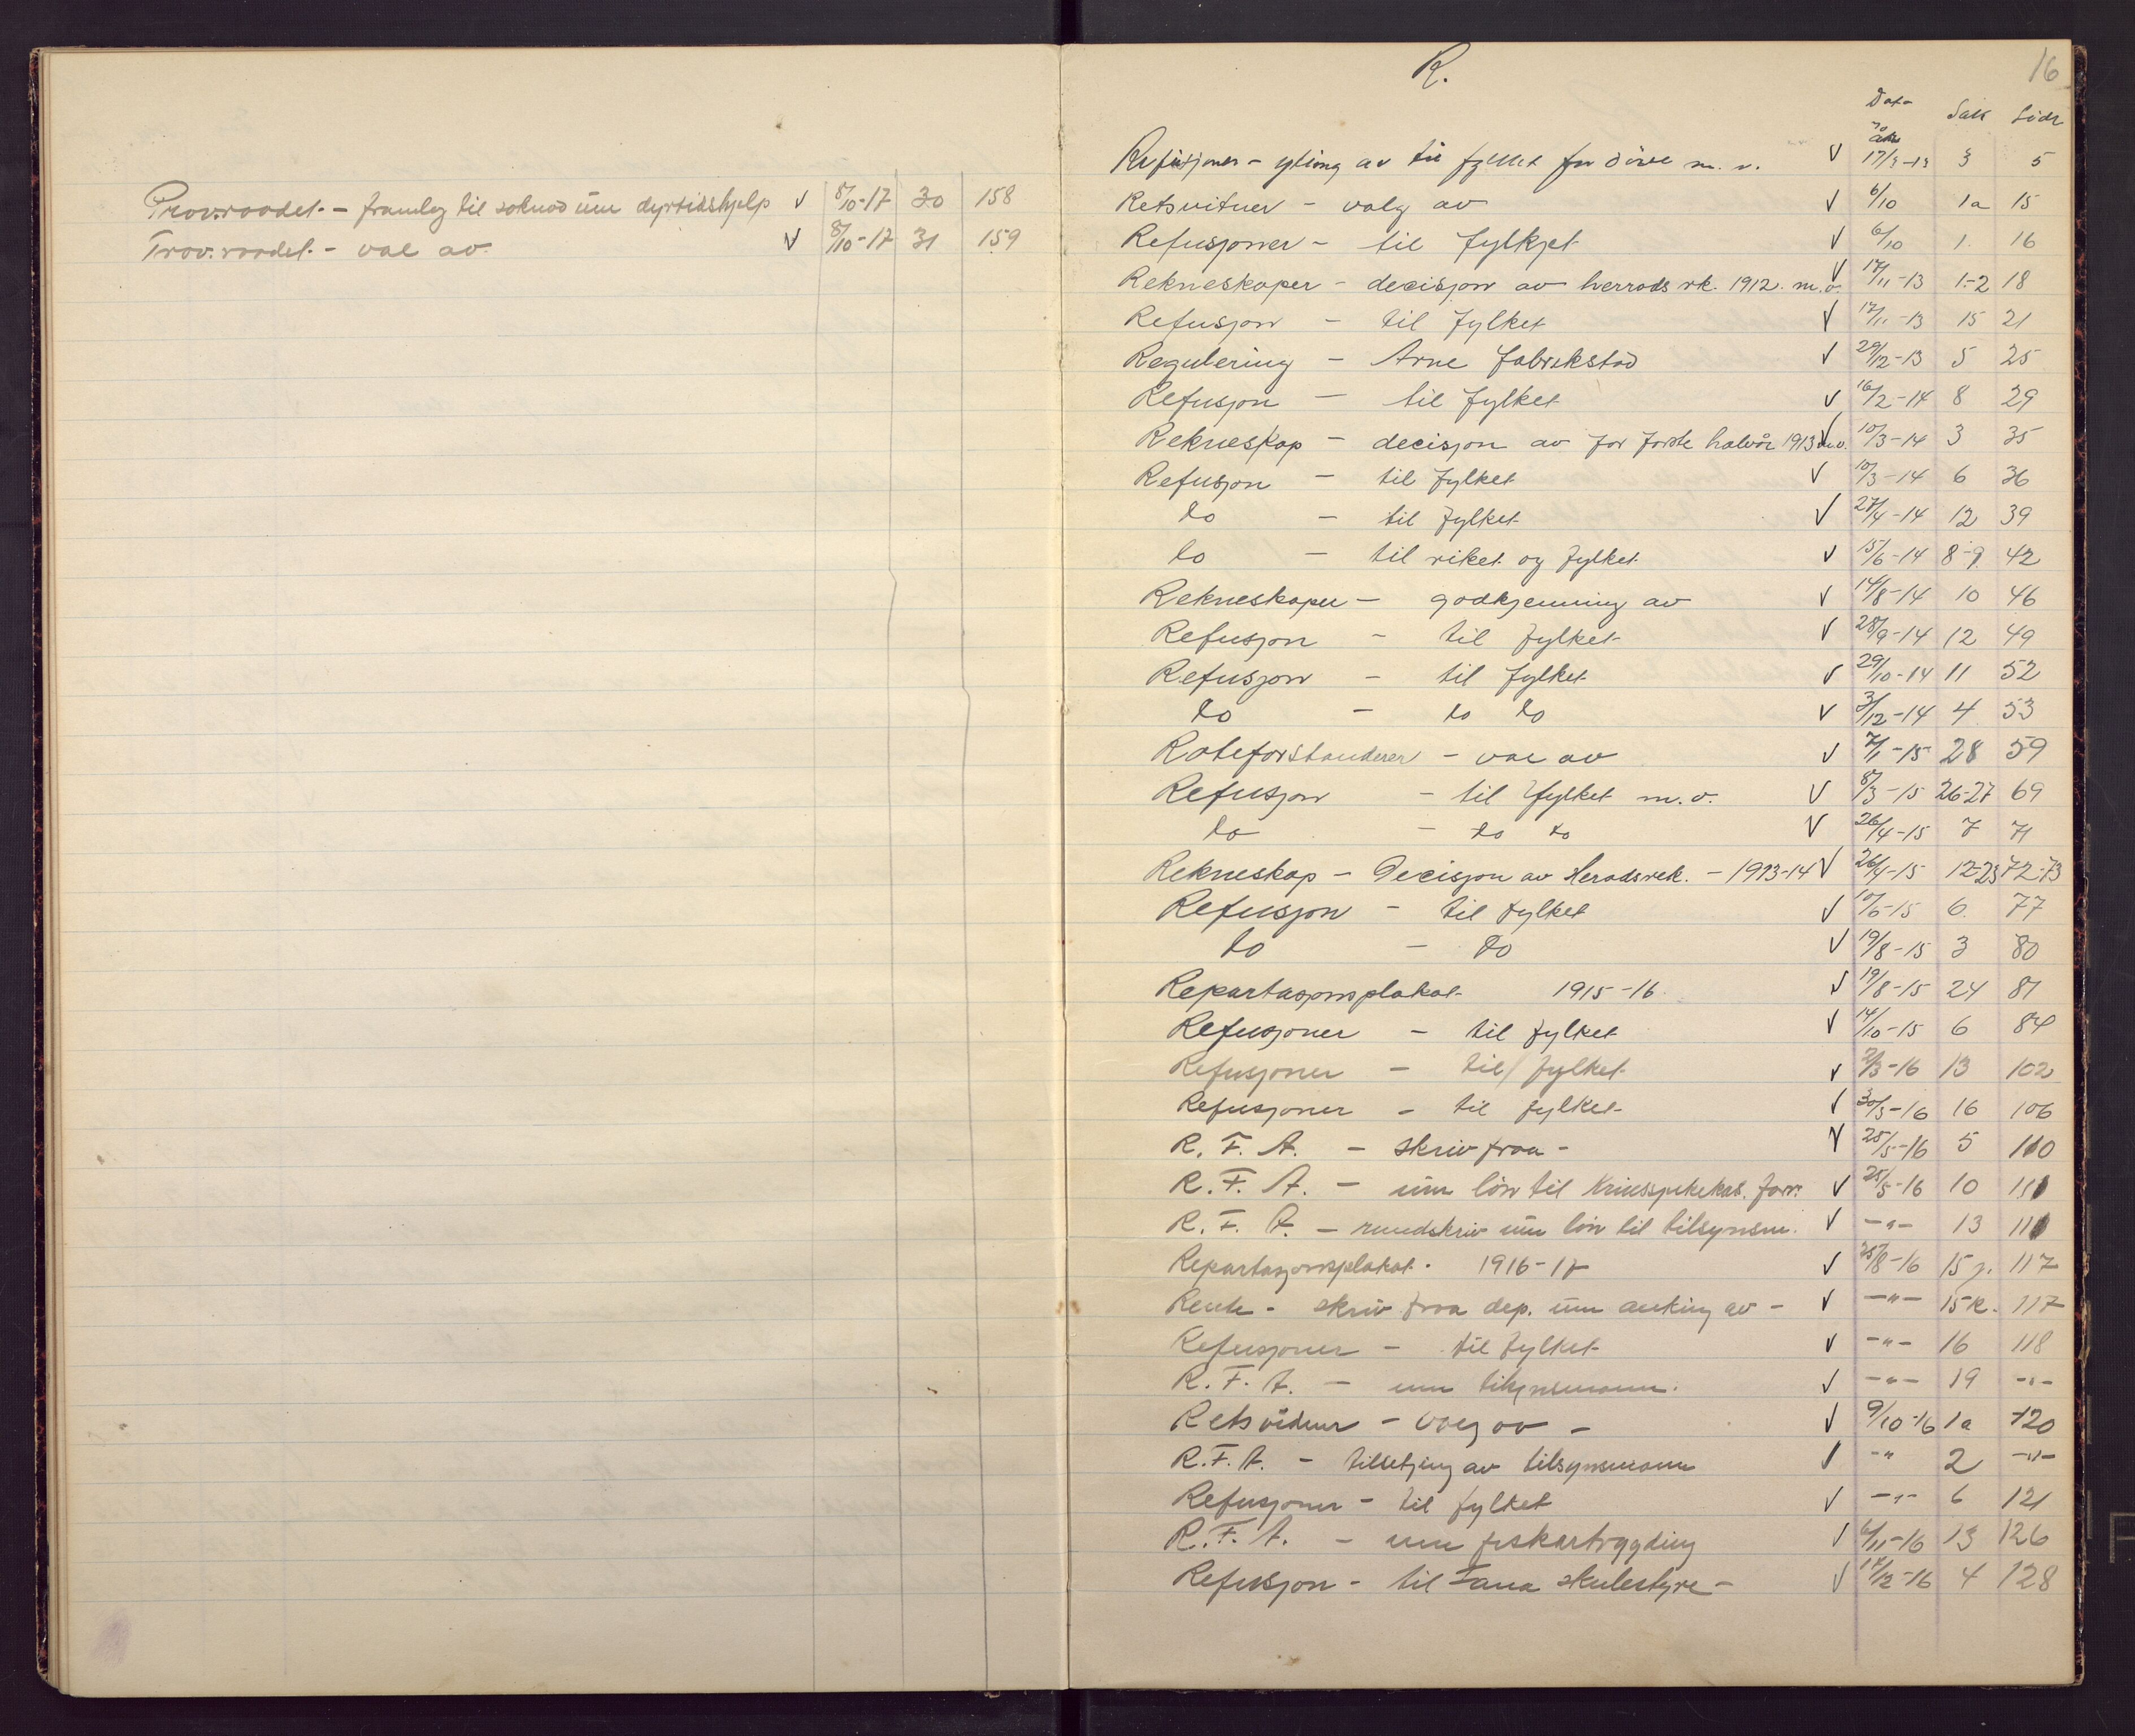 Prov.raadet. - framlag til soknad um dyrtidshjelp V 8/10-17 30 158
Prov.raadet. - val av. V 8/10-17 31 159
R. 16
Dato Sak Sidr
Refusjoner - ytiing av til fylket for döve m. v. V 17/3-13 3 5
Retsvitner - valg av V 6/10 1a 15
Refusjoner - til fylkjet V 6/10 1. 16
Rekneskaper - decisjon av herrads rk. 1912. m.v. V 17/11-13 1-2 18
Refusjon - til fylket V 17/11-13 15 21
Regulering - Arne fabrikstad V 29/12-13 5 25
Refusjon - til fylket V 16/2-14 8 29
Rekneskap - decisjon av for förste halvår 1913 m.v. V 10/3-14 3 35
Refusjon - til fylket V 10/3-14 6 36
do - til fylket V 27/4-14 12 39
do - til riket og fylket V 15/6-14 8-9. 42
Rekneskaper - godkjenning av V 14/8-14 10 46
Refusjon - til fylket V 28/9-14 12 49
Refusjon - til fylket V 29/10-14 11 52
do - do do V 3/12-14 4 53
Roteforstanderer - val av V 7/1-15 28 59
Refusjon - til fylket m.v. V 8/3-15 26-27 69
do - do do V 26/4-15 7 71
Rekneskap - Decisjon av Heradsrek. - 1913-14 V 26/4-15 12-23 72-73
Refusjon - til fylket V 10/6-15 6. 77
do - do V 19/8-15 3 80
Repartasjonsplakat 1915-16. V 19/8-15 24 81
Refusjoner - til fylket V 14/10-15 6 84
Refusjoner - til fylket V 2/3-16 13 102
Refusjoner - til fylket V 30/3-16 16 106
R. F. A. - skriv fraa - V 25/5-16 5 110
R. F. A. - um lön til forr. V 25/5-16 10 111
R. F. A. - rundskriv um lön til tilsynsm. V -"- 13 111
Repartasjonsplakat. 1916-17 V 25/8-16 15 j. 117
Rente - skriv fraa dep. um auking av - V -"- 15 k. 117
Refusjoner - til fylket V -"- 16 118
R. F. A. - um tilsynsmann. V -"- 19 -"-
Retsvidner - valg av - V 9/10-16 1a 120
R. F. A. - tilsetjing av tilsynsmann V -" 2 -"-
Refusjoner - til fylket V -"- 6 121
R. F. A. - um fiskartrygding V 6/11-16 13 126
Refusjon - til Fana skulestyre - V 17/12-16 4 128